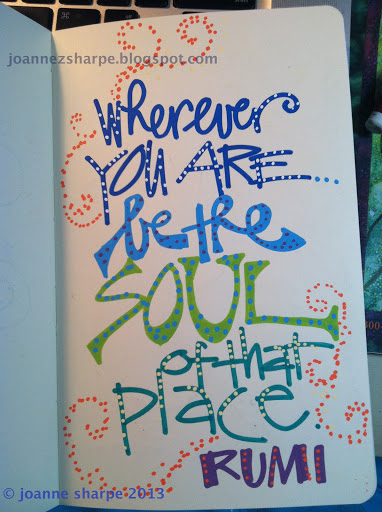 joannezsharpe.blogspot.com
wherever
YOU ARE...
be the
SOUL
of that
place.
RUMI
© joanne sharpe 2013